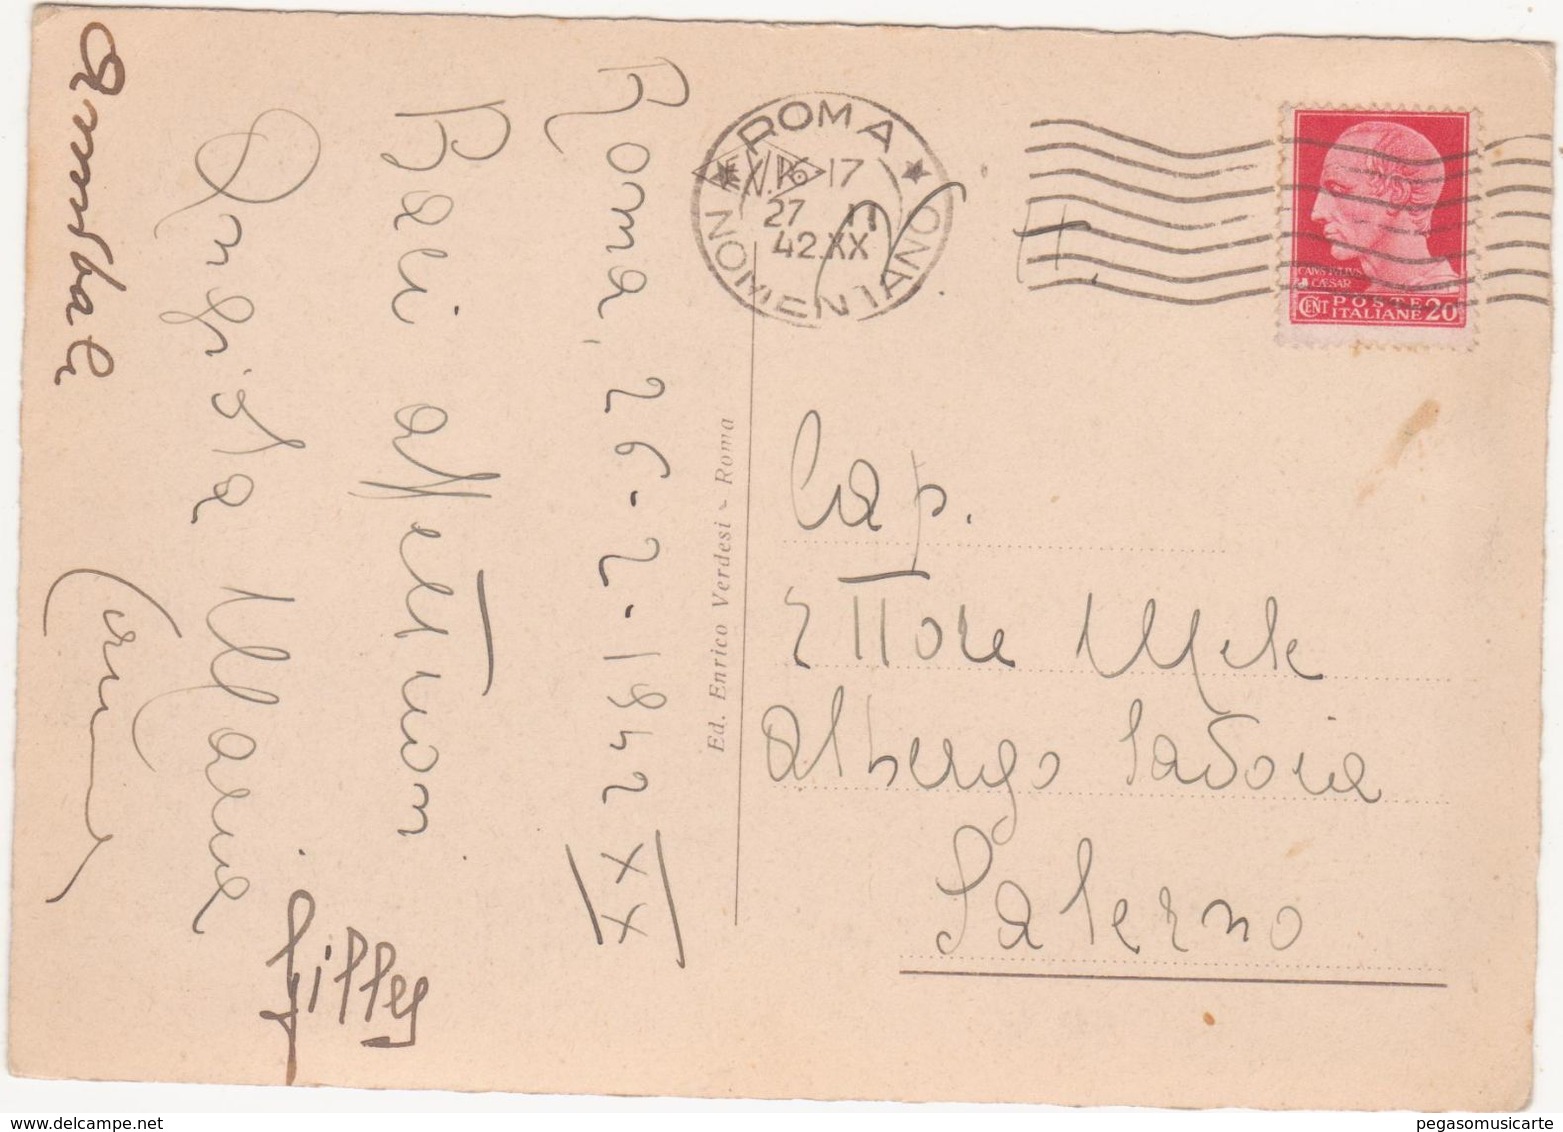 Roma, 26-2-1942 XX
Baci affettuosi
Annibale
Gilles
Ed. Enrico Verdesi - Roma
ROMA
NOMENTANO
16-17
27 II
42.XX
CAIVS IVLIVS
CÆSAR
CENT POSTE 20
ITALIANE
Cap.
Ettore Mele
Albergo Savoia
Salerno
pegasomusicarte